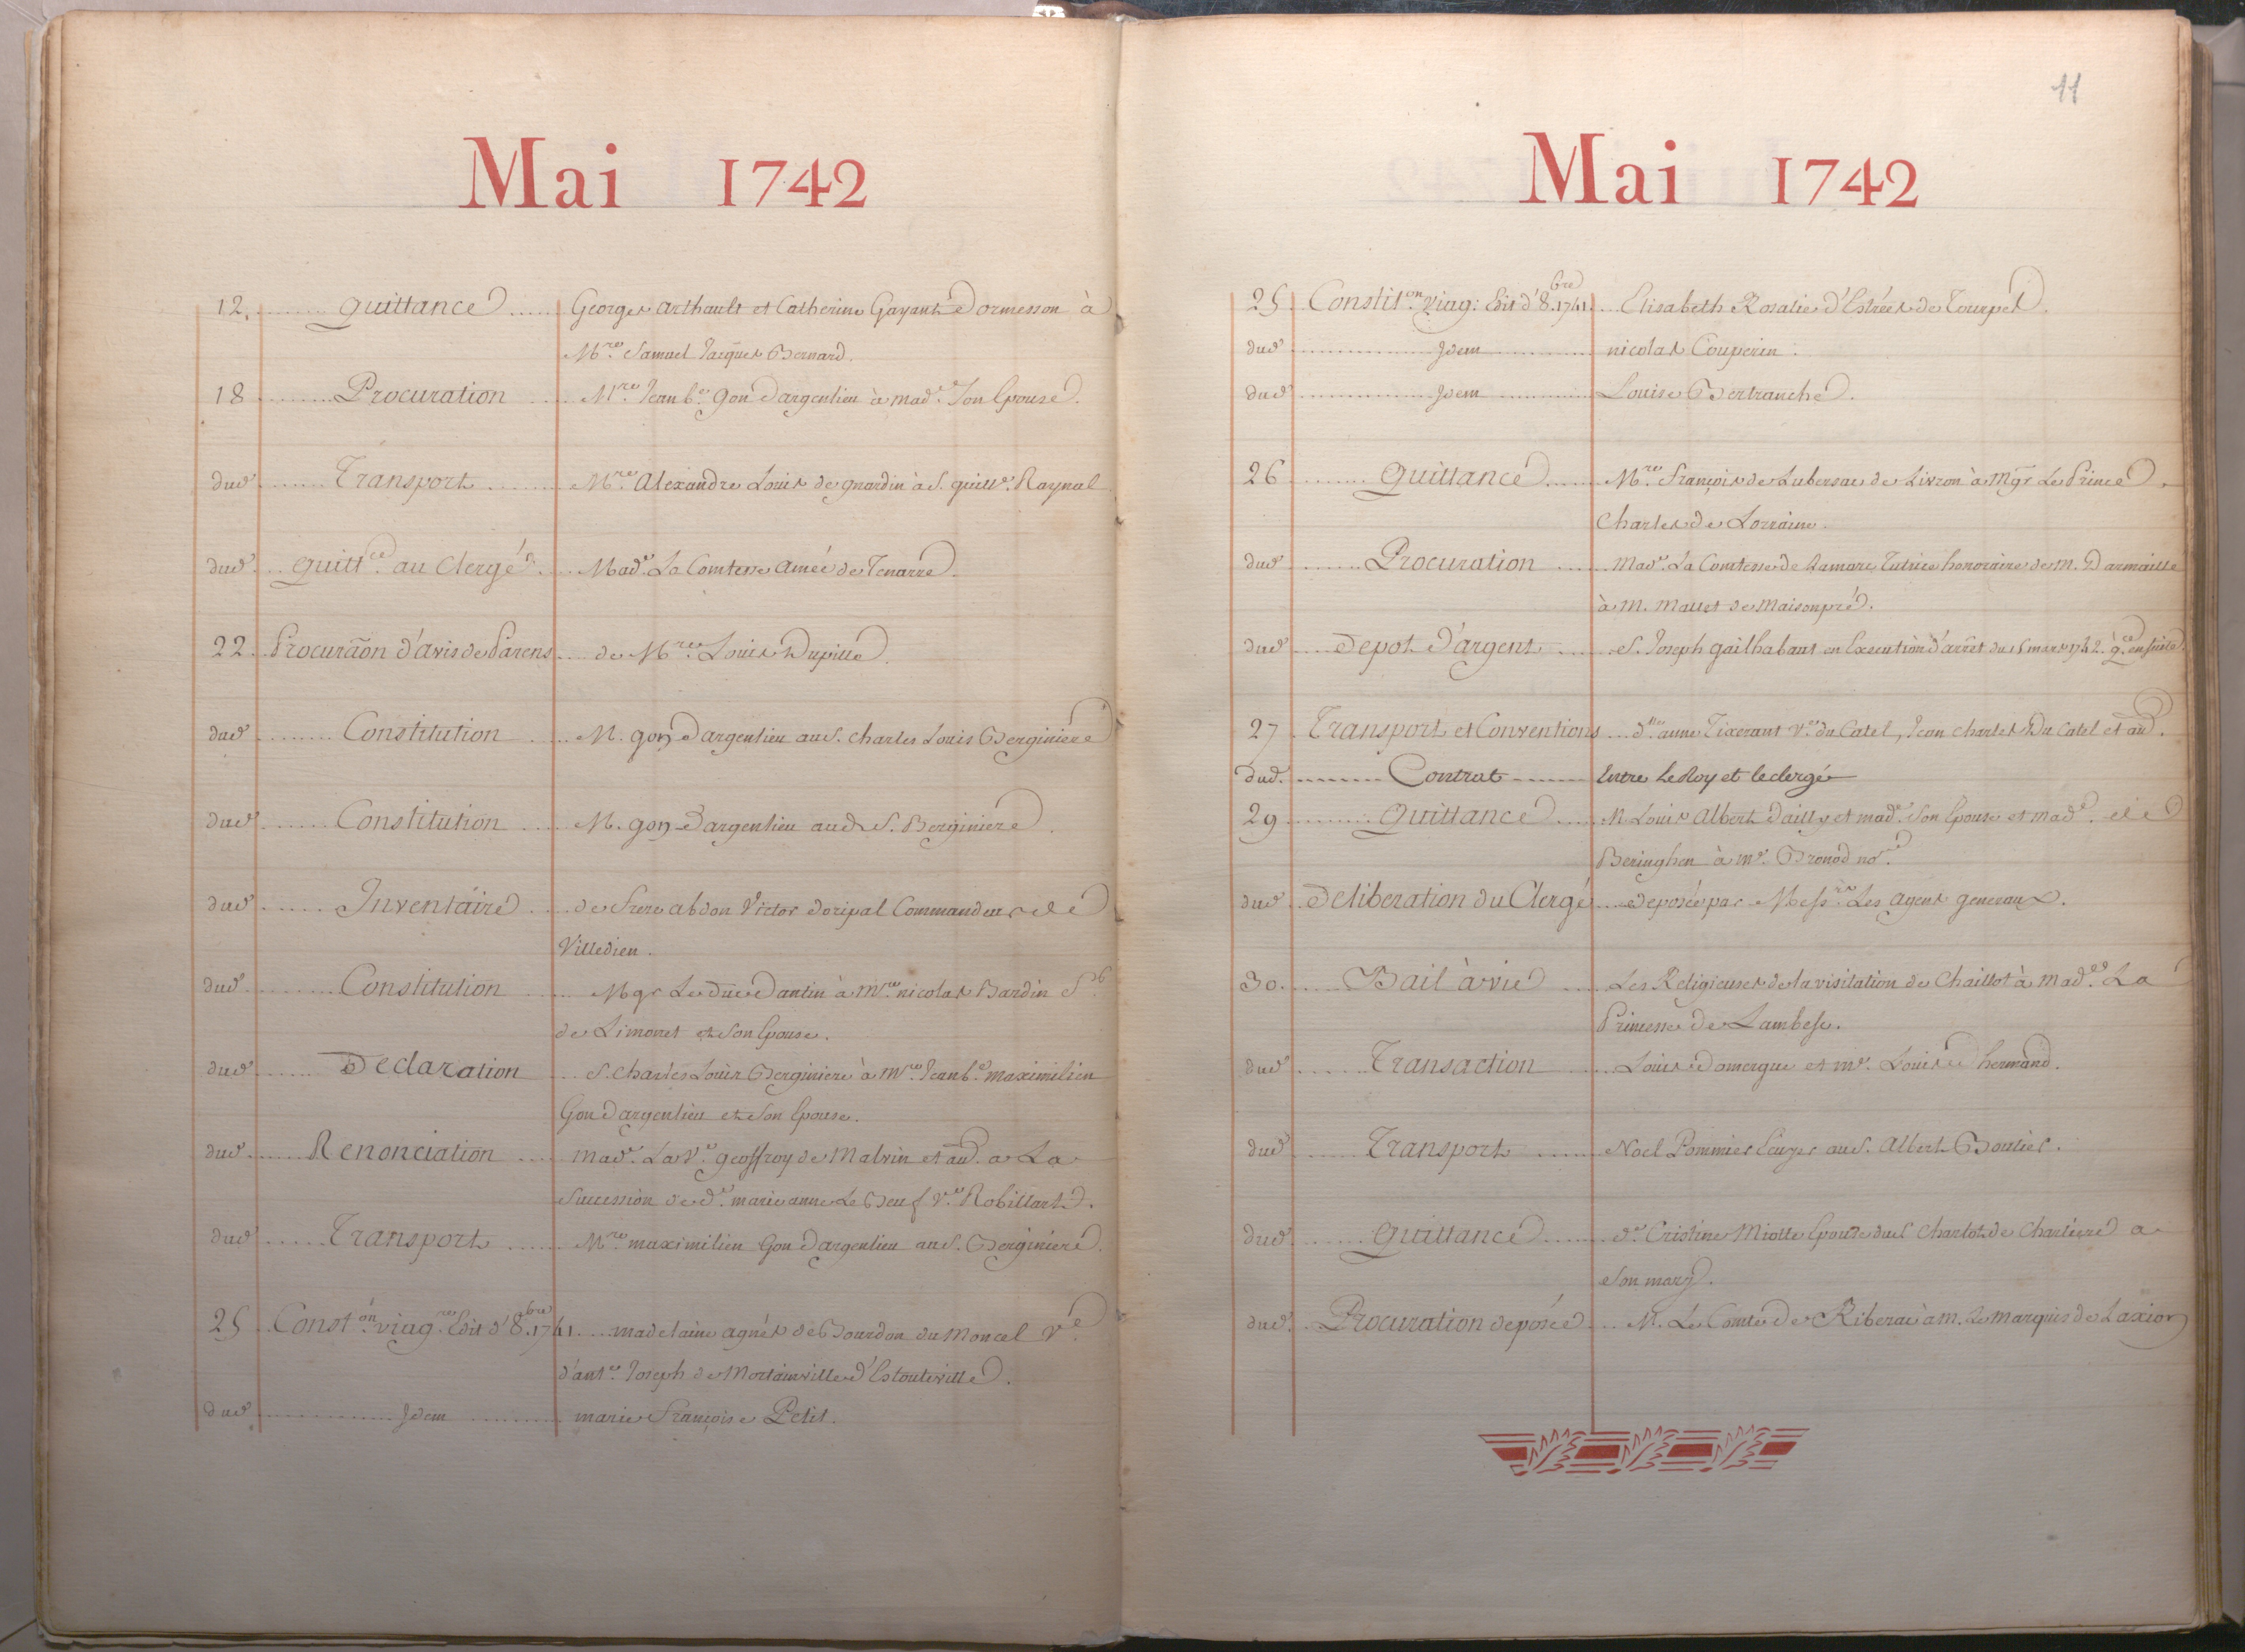 Mai 1742
12. Quittance Georges Arthault et Catherine Gayant Dormesson à
Mre Samuel Jacques Bernard.
18 Procuration Mre Jean be gon Dargenlieu à made son Epouse.
dud Transport Mre Alexandre Louis de à S. guille Raynal
dud quittce au Clergé Made La Comtesse Amée de Tenarre.
22 Procurãon d'avis de Parens de Mre Louis Dupille.
dud Constitution M. gon Dargenlieu au S. charles Louis Berginiere
dud Constitution M. gon Dargenlieu aud S. Berginiere.
dud Inventaire de frere abdon Victor doripal Commandeur de
Villedieu.
dud Constitution Mgr Le duc Dantin à Mre nicolas Bardin
de Limonet et son Epouse.
dud Declaration S. Charles Louis Berginiere à Mre Jean be maximilien
Gon Dargenlieu et son Epouse.
dud Renonciation made La ve geoffroy de Malvin et au. a La
Succession de de marie anne Le Beuf ve Robillart.
dud Transport Mre maximilien Gon Dargenlieu au S. Berginiere.
25 Conston viagre Edit d'8bre 1741 madelaine agnés de Bourdon du Moncel Ve
d'ante Joseph de Mortainville d'Estouteville.
dud Idem marie Françoise Petit.
11
Mai 1742
25 Constiton viag: Edit d'8bre 1741. Elisabeth Rosalie d'Estrées de Tourpet.
dud Idem nicolas Couperin.
dud Idem Louise Bertranche.
26 Quittance Mre François de Lubersac de Livron à Mgr Le Prince
Charles de Lorraine.
dud Procuration Made La Comtesse de Lamarc Tutrice honoraire de M. Darmaille
à M. Mallet de Maisonpré.
dud Depot d'argent S. Joseph gailhabaut en Execution d'arrêt du 15 mars 1742. qce ensuite.
27 Transport et Conventions dlle anne Tixerant ve du Catel, Jean charles Du Catel et au.
dud. Contrat Entre Le Roy et le clergé
29 Quittance M. Louis Albert Dailly et made son Epouse et made de
Beringhen à me Bronod nore
dud Deliberation du Clergé deposée par Messrs Les agens generaux.
30. Bail à vie Les Religieuses de la visitation de Chaillot à made La
Princesse de Lambesc.
dud Transaction Louis Domergue et me Louis hermand.
dud Transport Noel Pommier Ecuyer au S. Albert Boutier.
dud Quittance de Cristine Miotte Epouse du S Charlot de Charliere a
son mary.
dud Procuration deposée M. Le Comte de Riberac à M. Le Marquis de Laxion